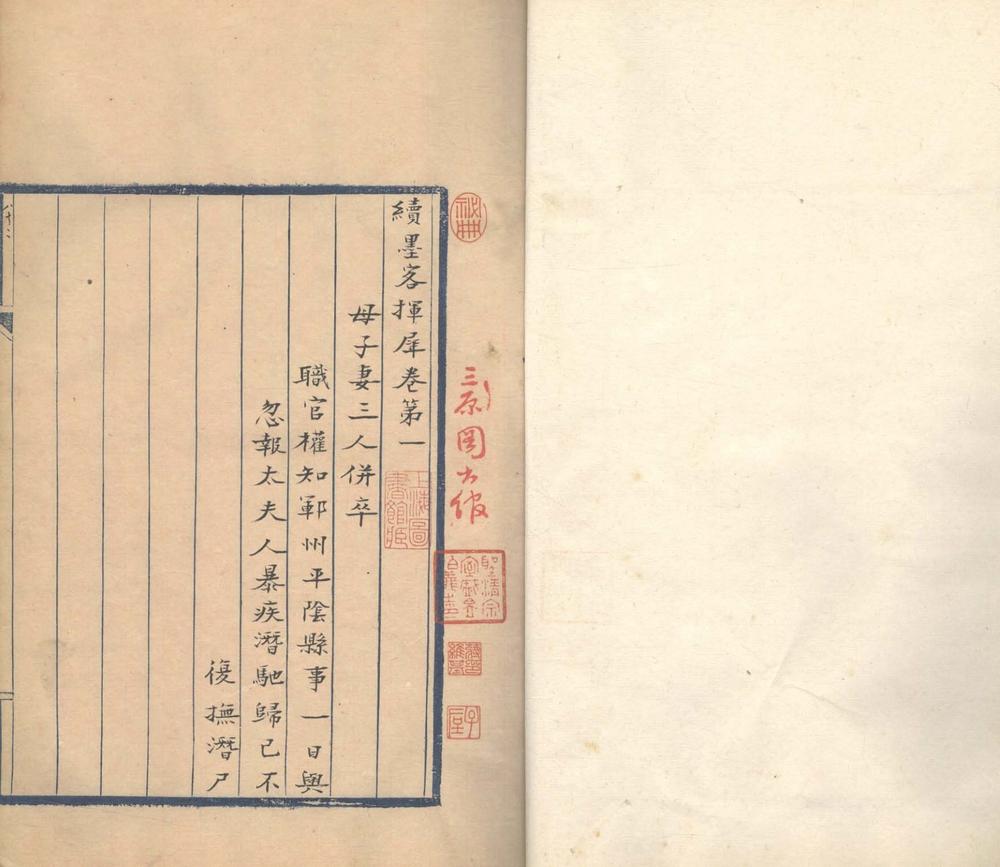 續墨客揮犀卷第一
母子妻三人併卒
職官權知鄆州平陰縣事一日與
忽報太夫人暴疾潛馳歸已不
復撫潛尸
上海圖
書館臧